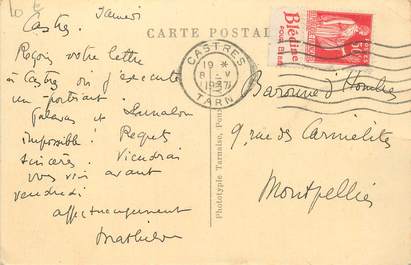 10 €
Samedi
Castres.
Reçois votre lettre
à Castres où j'exécute
un portrait.
Palavas et
impossible! Regrets
sincères. Viendrai
vous voir avant
vendredi
affectueusement
CARTE POSTALE
CASTRES
19 *
8 - V
1937
TARN
Blédine
POSTES
Phototypie Tarnaise, Pou
Baronne d'Hombres
9, rue des Carmélites
Montpellier